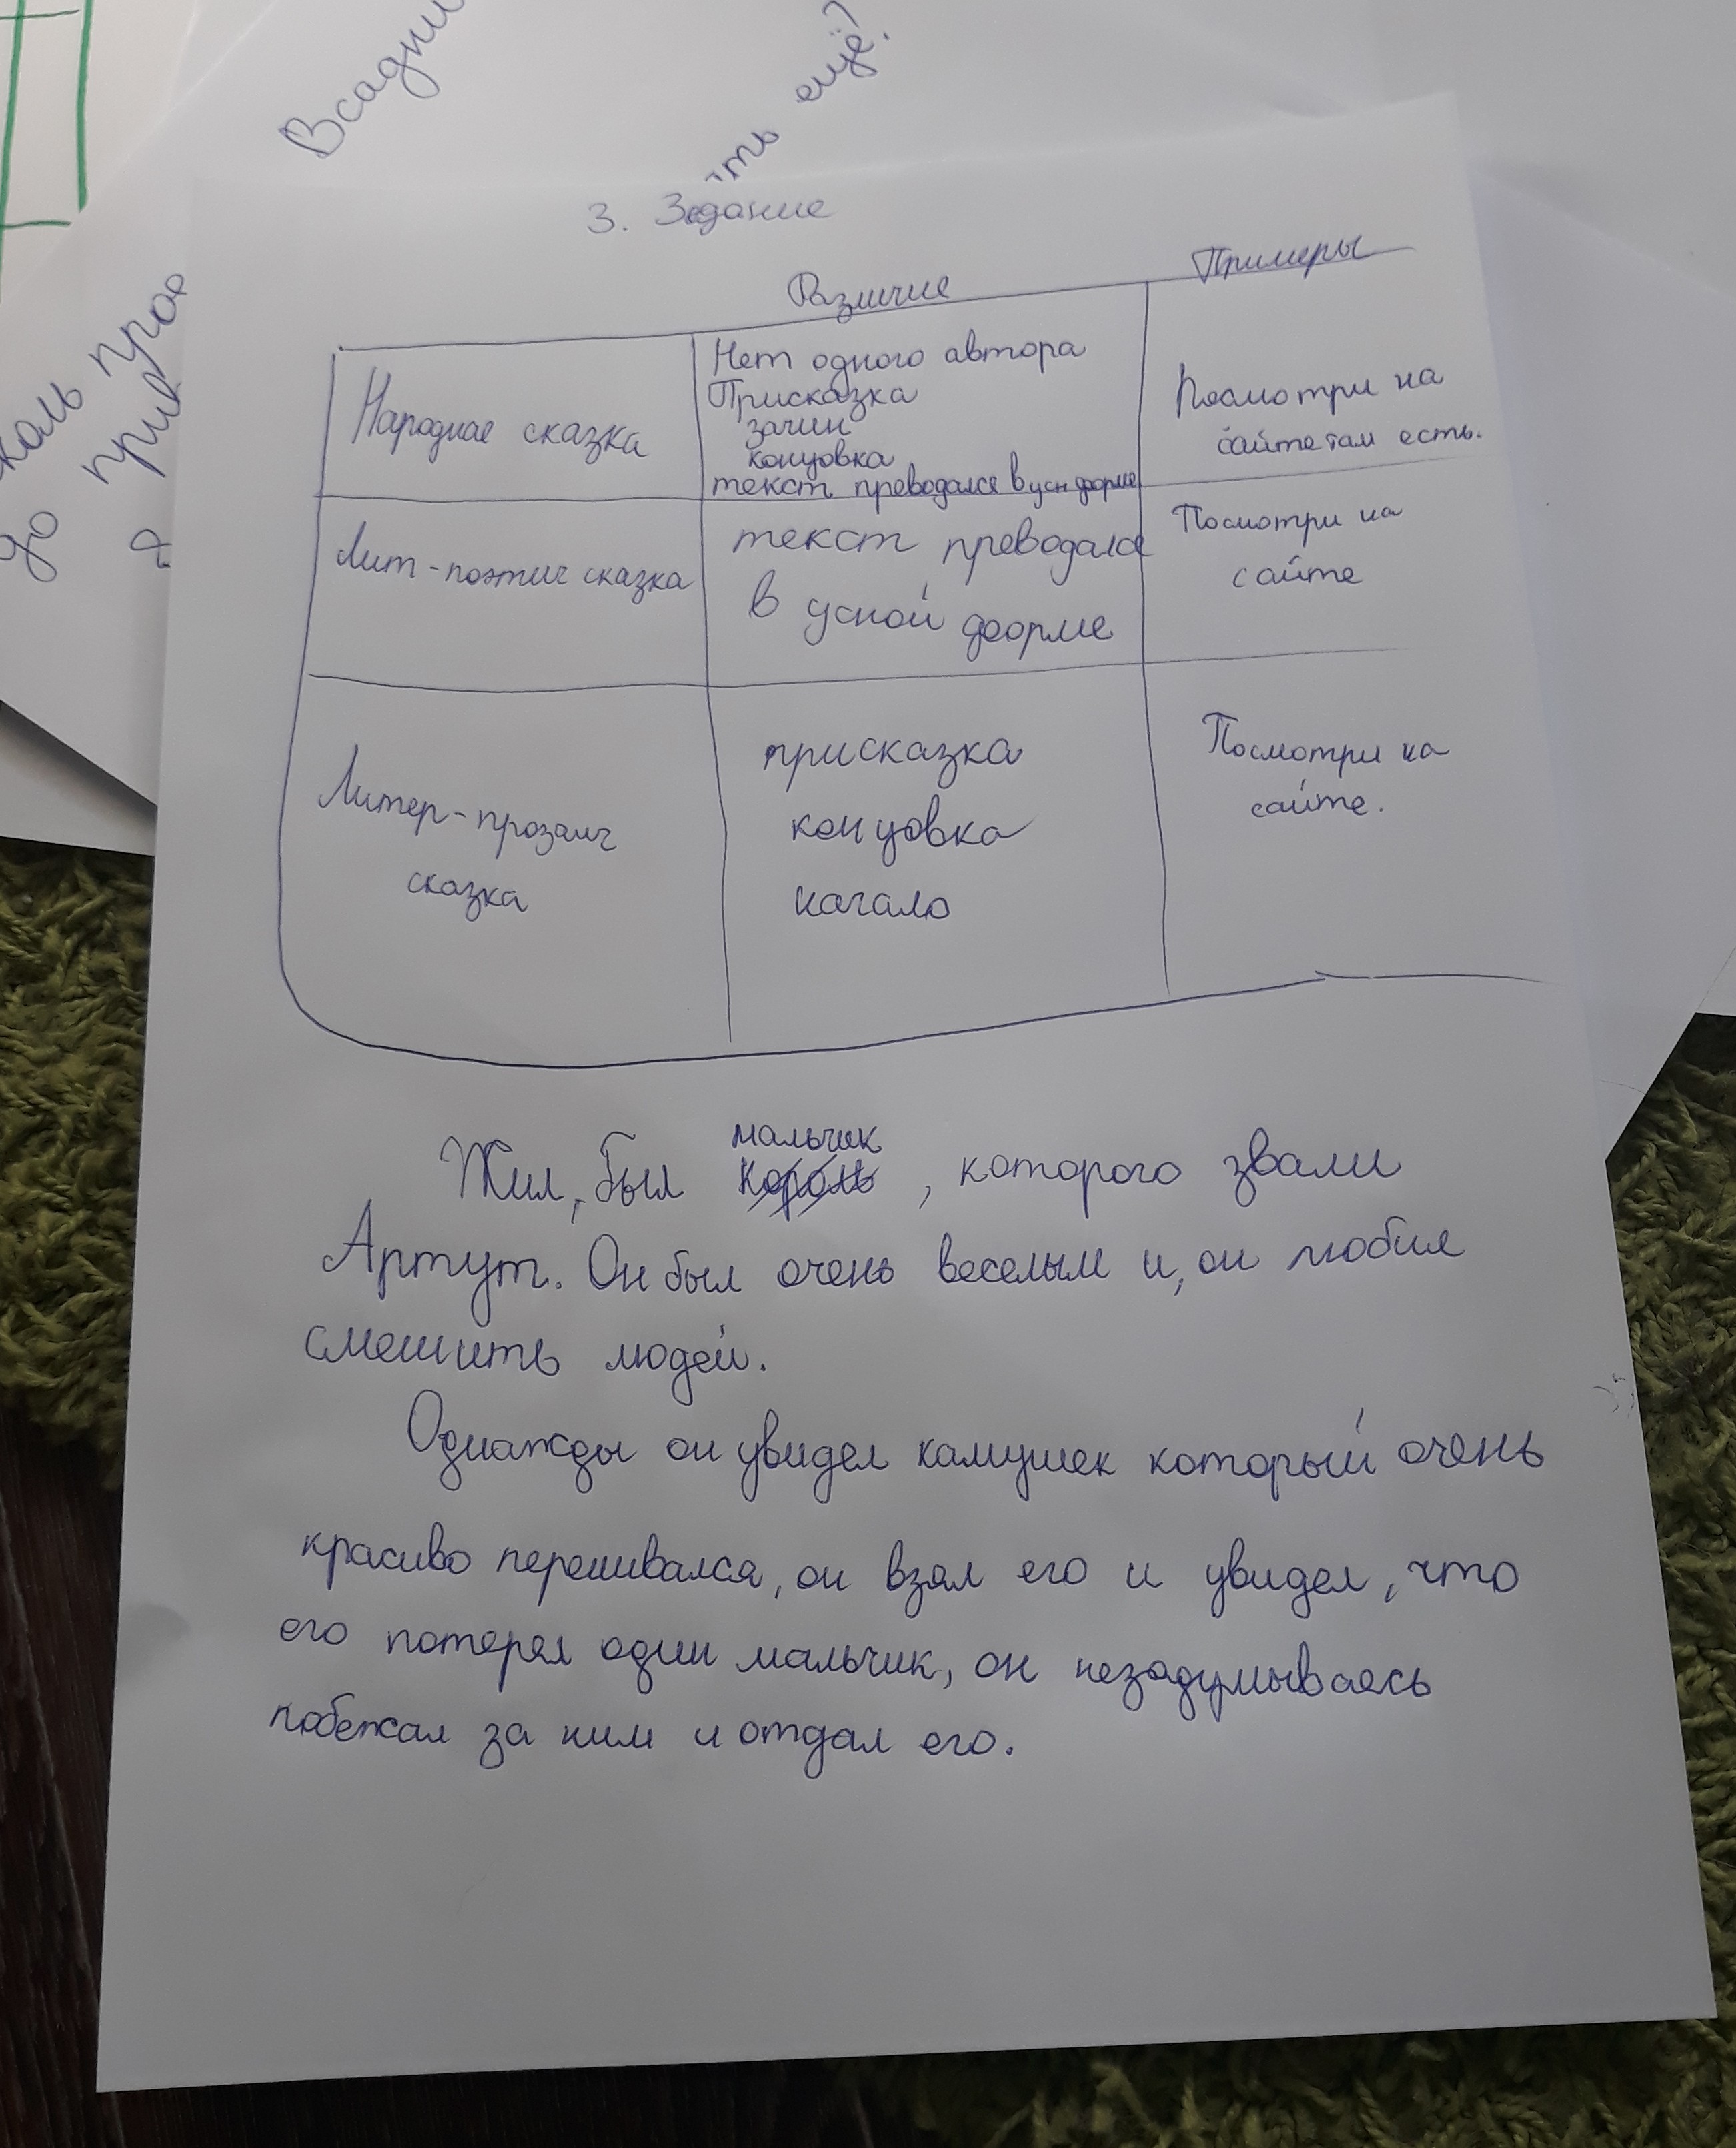 Всадни
ть ещё?
коль прое
до прив
я
3. Задание
Различие
Примеры
Народная сказка
Нет одного автора
Присказка
зачин
концовка
текст преводался в усн форме
Посмотри на
сайте там есть.
Лит-поэтич сказка
текст преводался
в усной форме
Посмотри на
сайте
Литер-прозаич
сказка
присказка
концовка
начало
Посмотри на
сайте.
мальчик
Жил, был король, которого звали
Артут. Он был очень веселым и, он любил
смешить людей.
Однажды он увидел камушек который очень
красиво перешивался, он взял его и увидел, что
его потерял один мальчик, он незадумываясь
побежал за ним и отдал его.